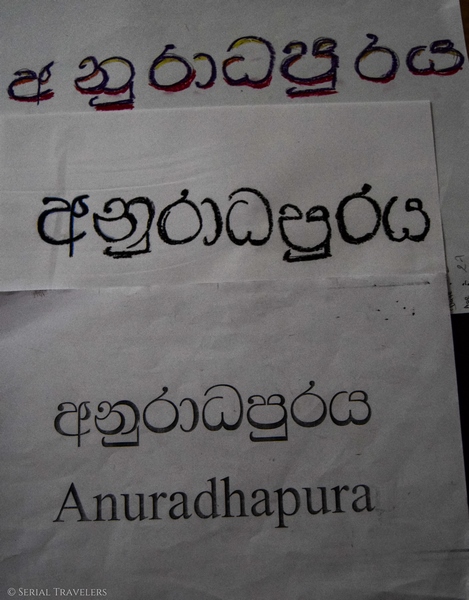 අනුරාධපුරය
අනුරාධපුරය
අනුරාධපුරය
Anuradhapura
© SERIAL TRAVELERS